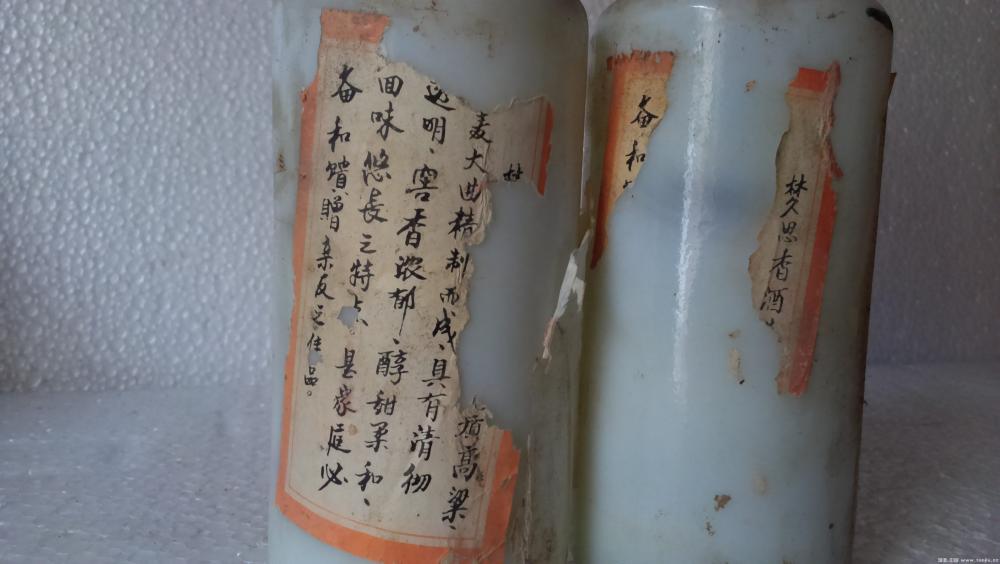 林
高粱、
麦大曲精制而成、具有清彻
透明、窖香浓郁、醇甜柔和、
回味悠長之特点、是家庭必
备和馈赠亲友之佳品。
林久思香酒
备和